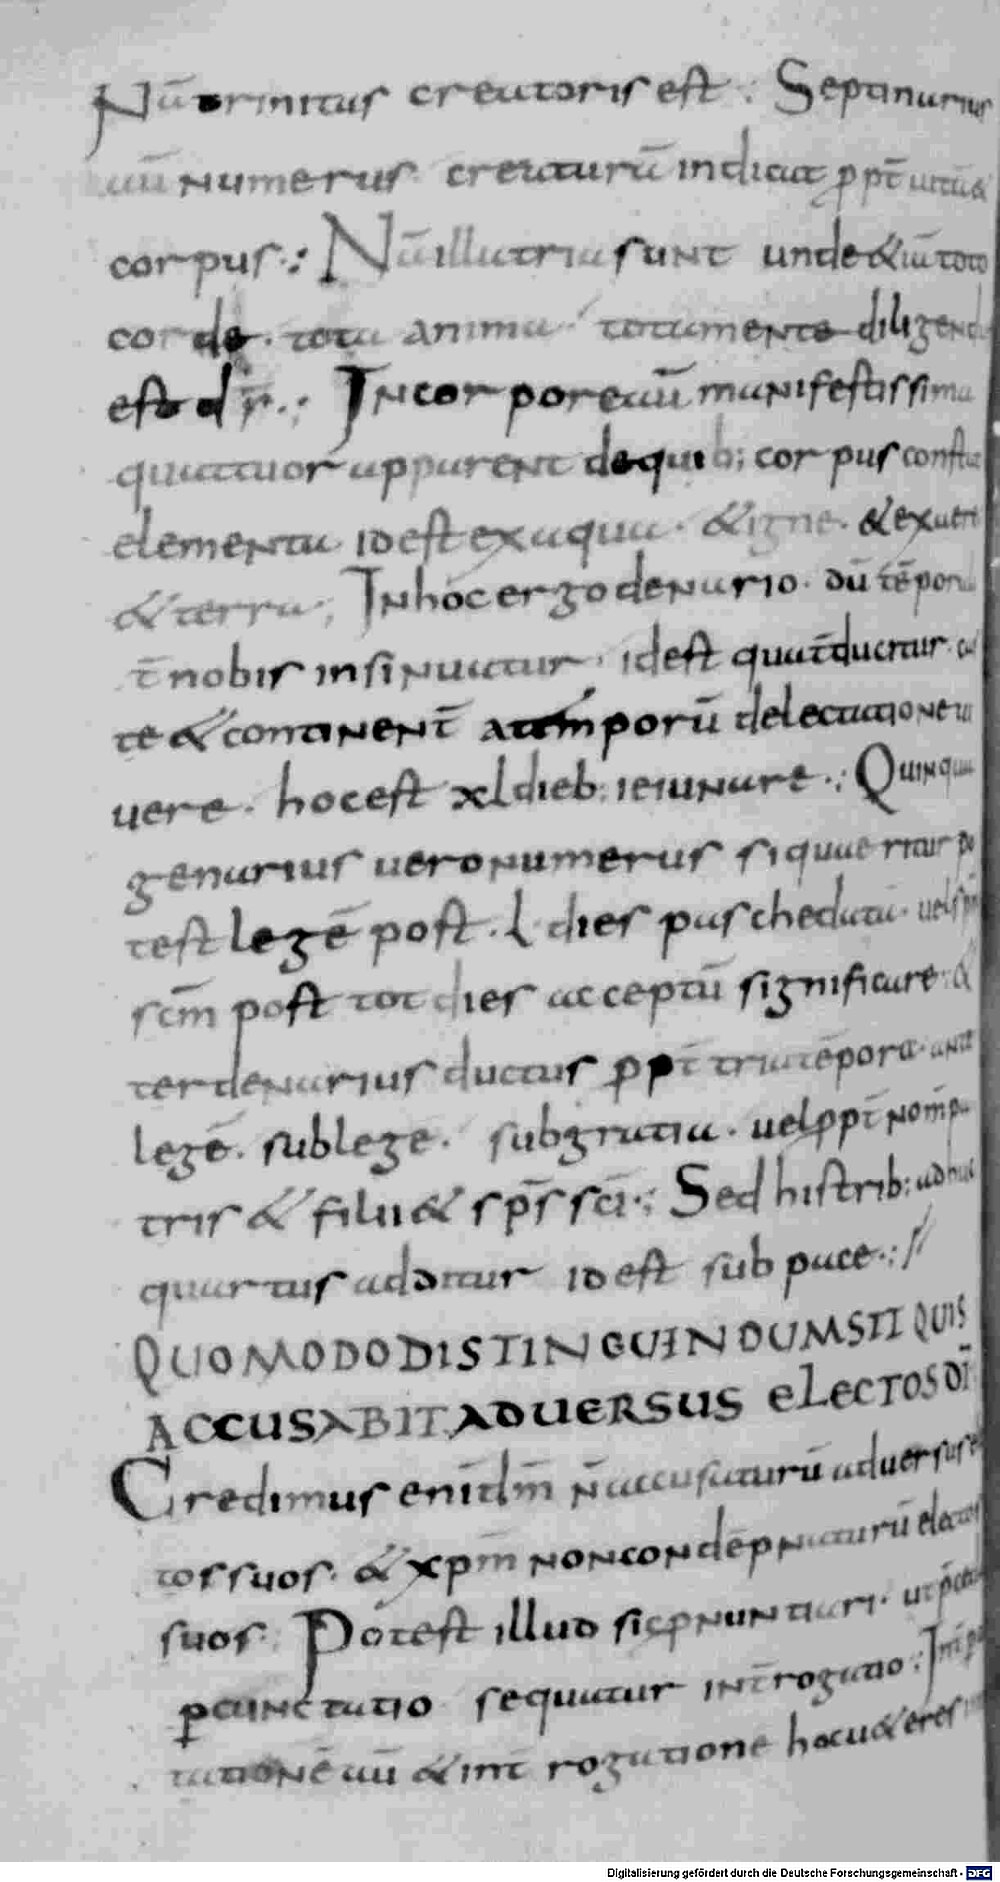 Nā trinitas creatoris est: Septinarius
aū numerus creaturā indicat ꝓpt̄ uitā &
corpus·: Nā illa tria sunt unde & iū toto
corde · tota anima · tota mente diligend
est dr̄·: In corpore aū manifestissima
quattuor apparent de quib; corpus consta
elementa id est ex aqua · & igne · & ex aere
& terra·; In hoc ergo denario · dū tēpora
t̄ nobis insinuatur · id est quat̄ ducitur ·
te & continent̄ a temporū delectatione ui
uere · hoc est xl dieb; ieiunare·: Quinqua
genarius uero numerus si quaeritur po
test legē post · L · dies paschę datā · uel spm̄
scm̄ post tot dies acceptū significare · &
ter denarius ductus ꝓpt̄ tria tēpora · ante
legē · sub lege · sub gratia · uel ꝓpt̄ nom̄ pa
tris & filii & sp̄s sc̄i·: Sed his trib; adhuc
quartus additur id est sub pace·:
QUOMODO DISTINGUENDUM SIT QUIS
ACCUSABIT ADUERSUS ELECTOS DĪ
Credimus enī dm̄ n̄ accusaturū aduersus elec
tos suos · & xpm̄ non condēpnaturū electos
suos·: Potest illud sic pnuntiari · ut p̄cedat
ꝑcunctatio sequatur int̄rogatio·: Int̄ ꝑ
tationē aū & int̄rogatione hoc u&eres